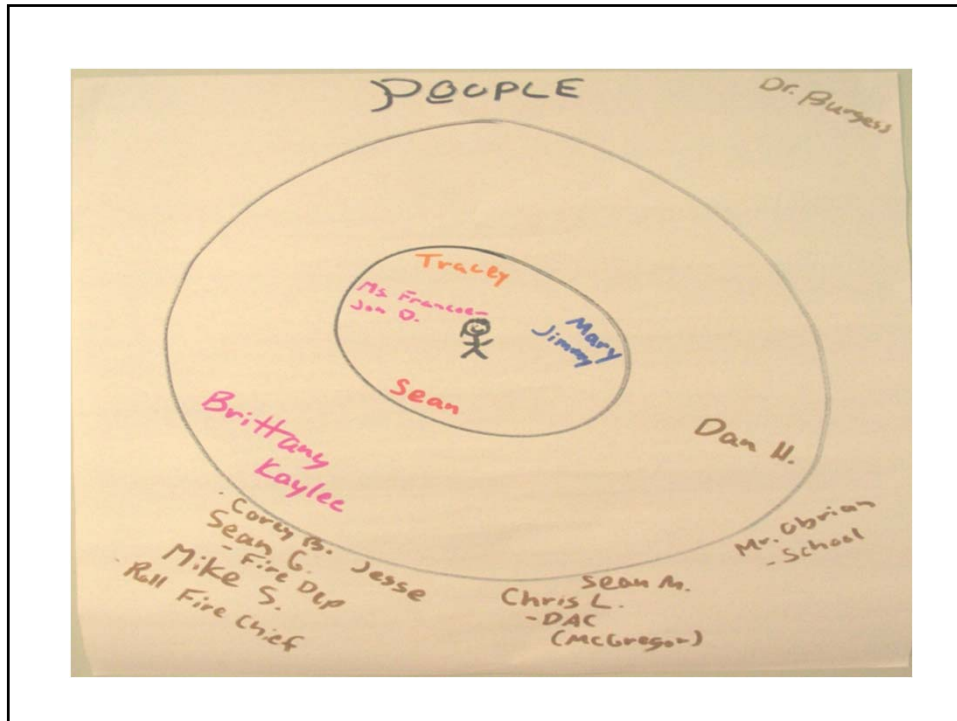 PEOPLE
Dr. Burgess
Tracey
Ms. Francoe-
Jon D.
Mary
Jimmy
Sean
Brittany
Kaylee
Dan H.
- Corey B.
Sean G.
- Fire Dep
Jesse
Mike S.
- Fire Chief
Sean M.
Chris L.
- DAC
(McGregor)
Mr. Obrian
- School